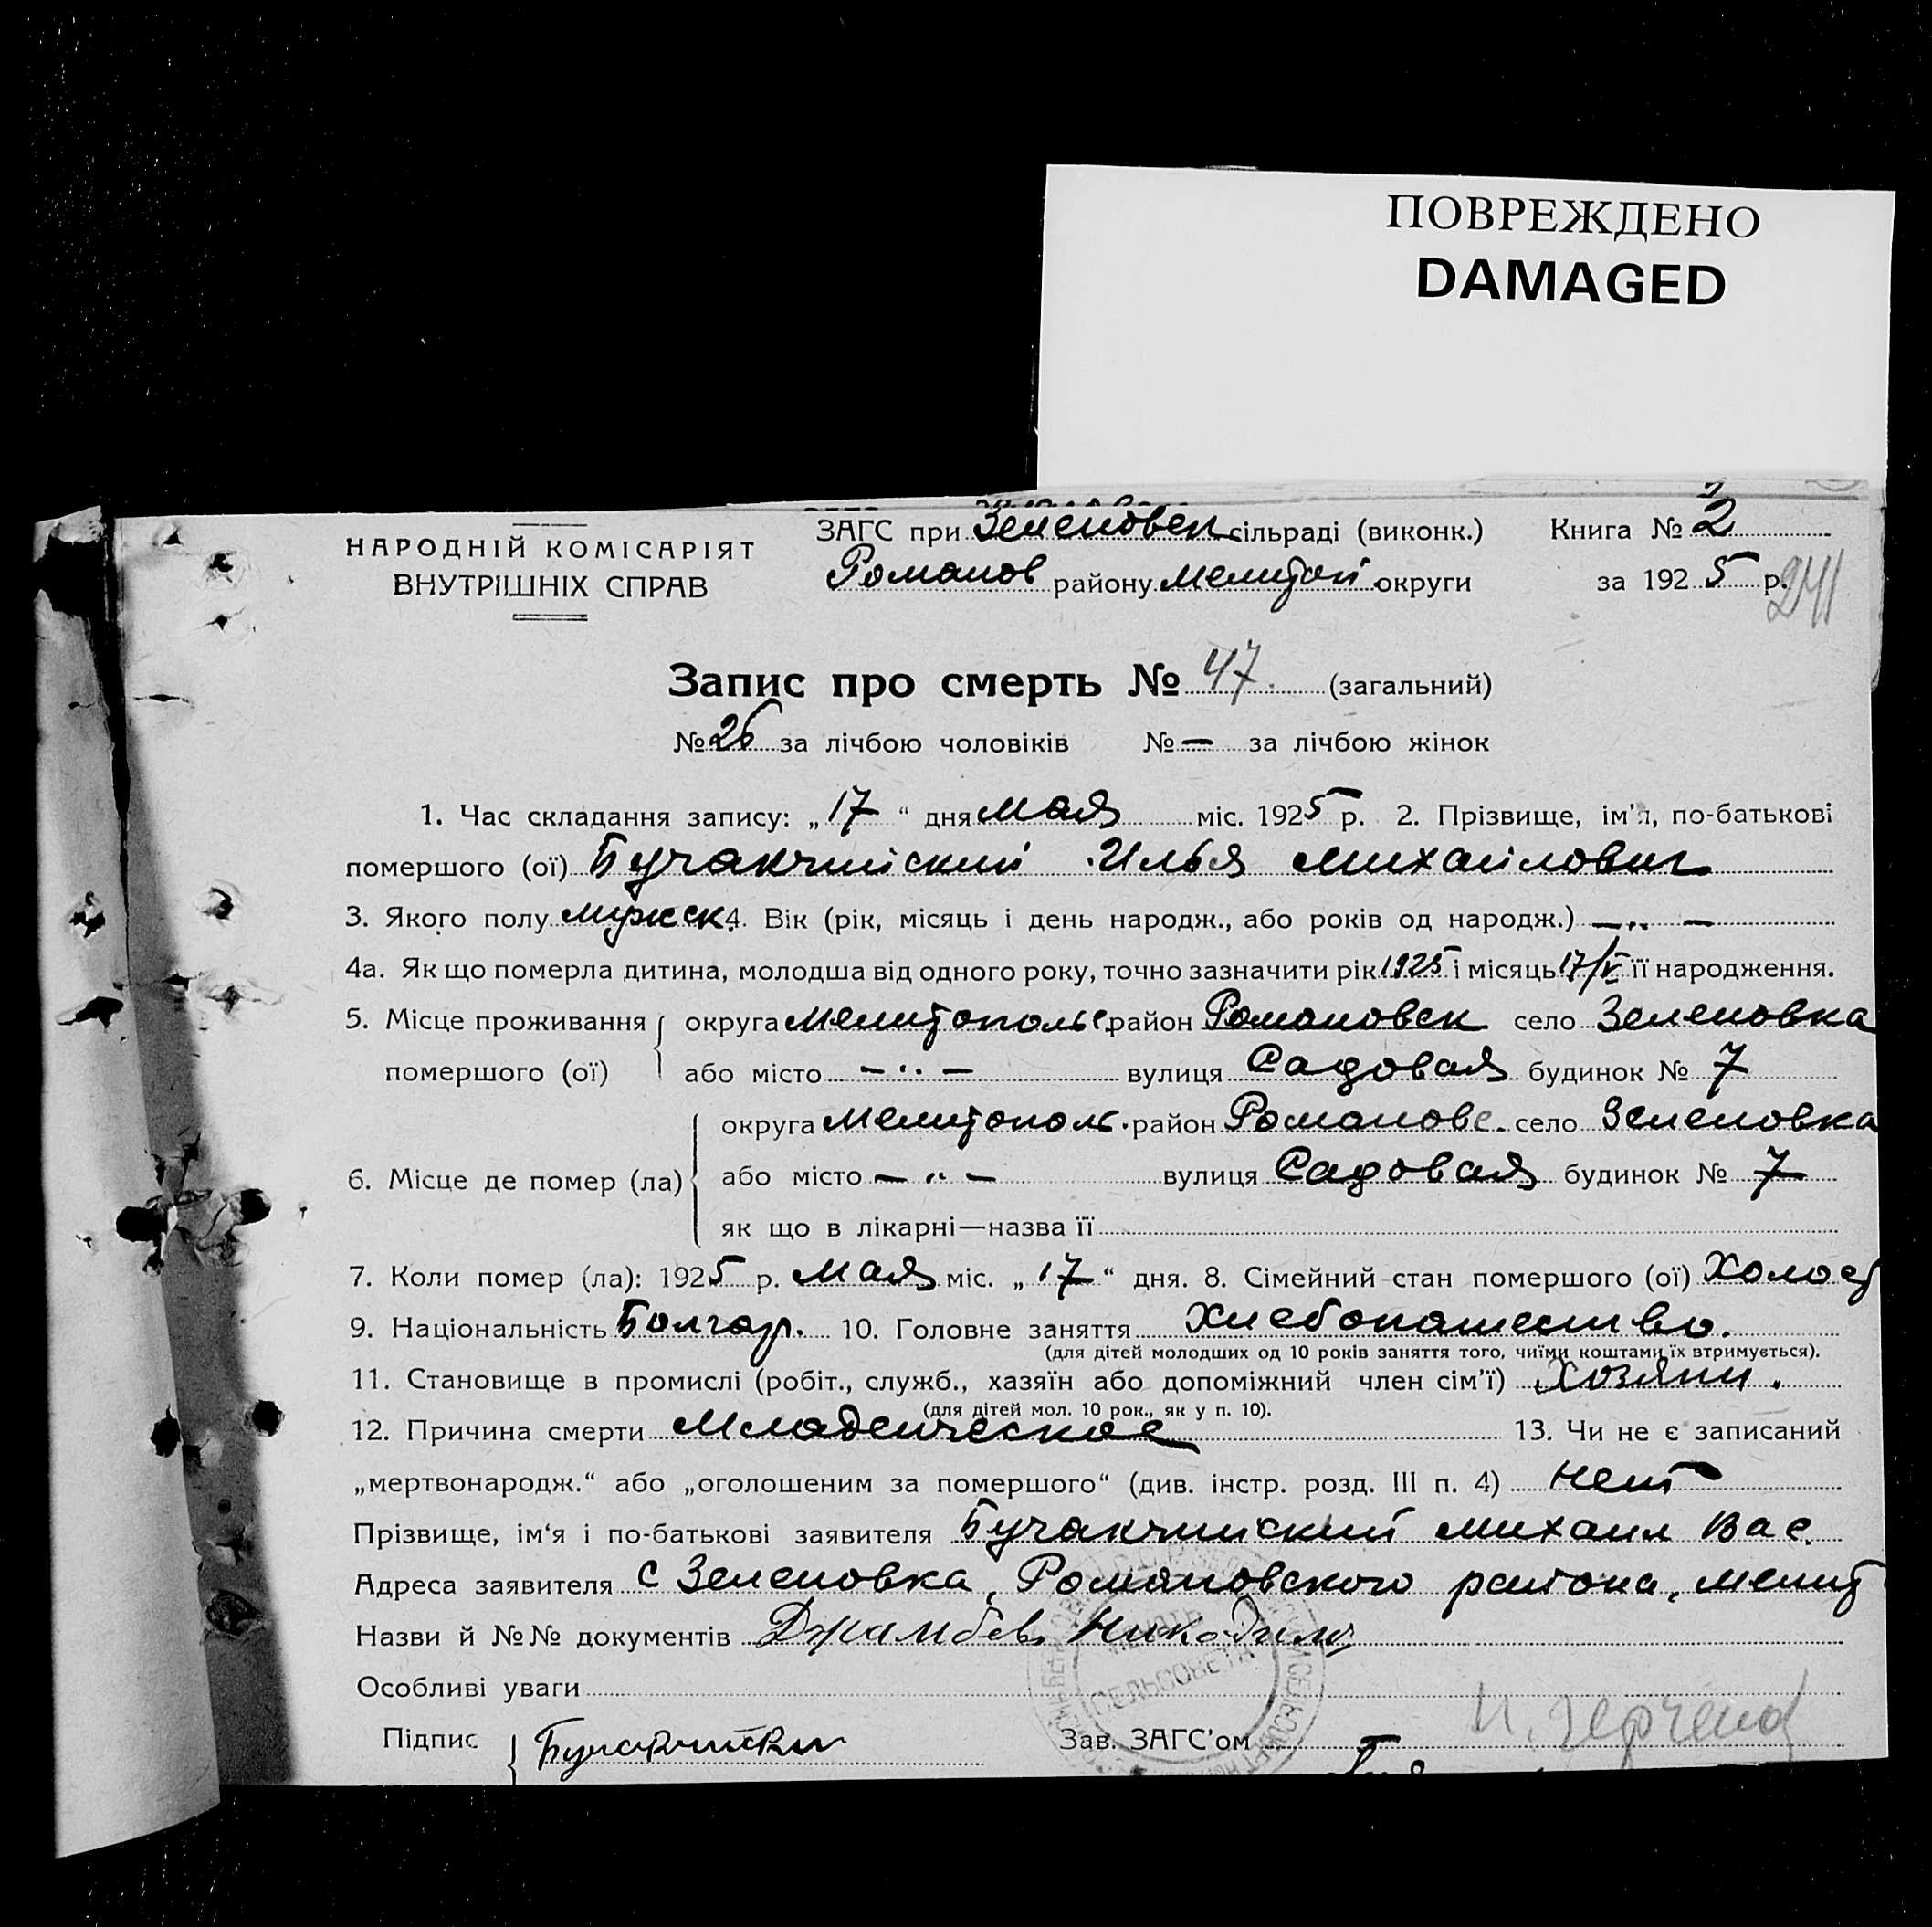 ПОВРЕЖДЕНО
DAMAGED
НАРОДНІЙ КОМІСАРІЯТ
ВНУТРІШНІХ СПРАВ
ЗАГС при Зеленовск сільраді (виконк.) Книга № 2
Романов району Мелитоп округи за 1925 р. 241
Запис про смерть № 47. (загальний)
№ 26 за лічбою чоловіків № — за лічбою жінок
1. Час складання запису: „17“ дня мая міс. 1925 р. 2. Прізвище, ім'я, по-батькові
помершого (ої) Бучакчийский Илья Михайлович
3. Якого полу мужск 4. Вік (рік, місяць і день народж., або років од народж.) — „ —
4а. Як що померла дитина, молодша від одного року, точно зазначити рік 1925 і місяць 17/V її народження.
5. Місце проживання округа Мелитопольс район Романовск село Зеленовка
помершого (ої) або місто — „ — вулиця Садовая будинок № 7
округа Мелитополь. район Романовс. село Зеленовка
6. Місце де помер (ла) або місто — „ — вулиця Садовая будинок № 7
як що в лікарні—назва її
7. Коли помер (ла): 1925 р. мая міс. „17“ дня. 8. Сімейний стан помершого (ої) Холост
9. Національність Болгар. 10. Головне заняття Хлебопашество.
(для дітей молодших од 10 років заняття того, чиїми коштами їх втримується).
11. Становище в промислі (робіт., служб., хазяїн або допоміжний член сім'ї) Хозяин.
(для дітей мол. 10 рок., як у п. 10).
12. Причина смерти Младенческое 13. Чи не є записаний
„мертвонародж.“ або „оголошеним за помершого“ (див. інстр. розд. III п. 4) нет
Прізвище, ім'я і по-батькові заявителя Бучакчийский Михаил Вас.
Адреса заявителя с Зеленовка, Романовского района, Мелит
Назви й №№ документів Джамбев Никодим
Особливі уваги
Підпис Бучакчийски Зав. ЗАГС'ом
СЕЛЬСОВЕТА